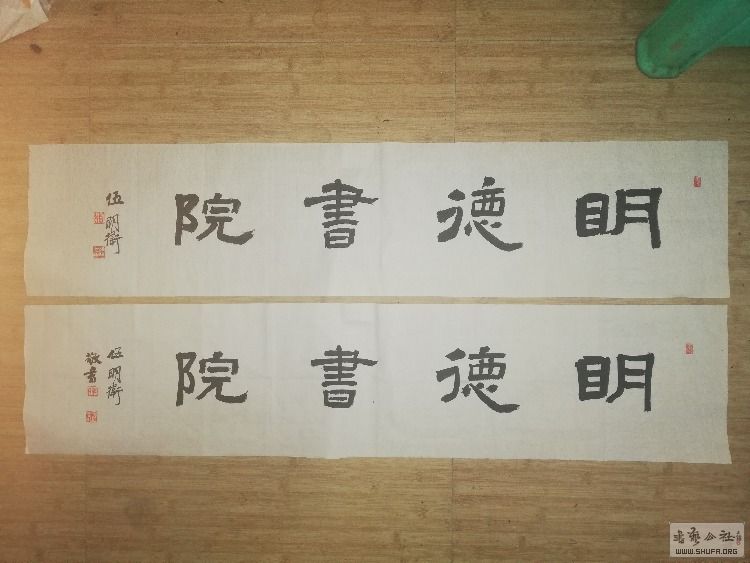 明德書院
伍明衛
明德書院
伍明衛
敬書
書艺公社
WWW.SHUFA.ORG